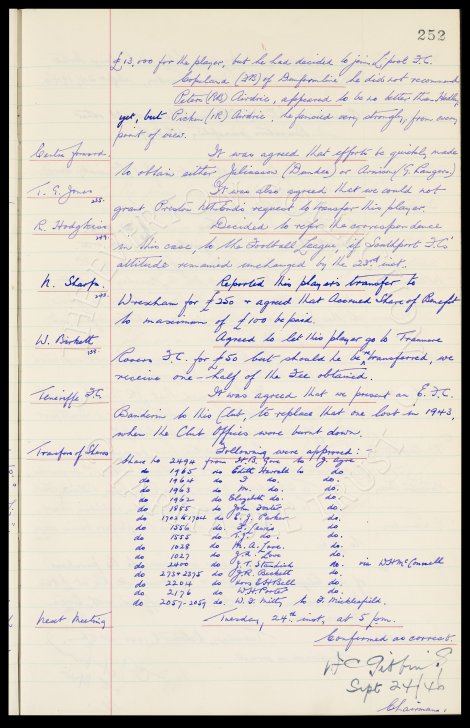 252
£13,000 for the player, but he had decided to join L'pool F.C.
Copeland (LB) of Dunfermline he did not recommend
Peters (RB) Airdrie, appeared to be no better than Hedley,
yet, but Picken (IR) Airdrie, he fancied very strongly, from every
point of view.
Centre forward. It was agreed that efforts be quickly made
to obtain either Juliussen (Dundee) or Arnison (G. Rangers)
T. G. Jones It was also agreed that we could not
grant Preston request to transfer this player.
R. Hodgkiss Decided to refer the correspondence
in this case, to the Football League, if Southport F.C.'s
attitude remained unchanged by the 23rd inst.
N. Sharp. Reported this player's transfer to
Wrexham for £250 & agreed that Accrued Share of Benefit
to maximum of £100 be paid.
W. Birkett Agreed to let this player go to Tranmere
Rovers F.C. for £50 but should he be re transferred, we
receive one-half of the Fee obtained.
Teneriffe F.C. It was agreed that we present an E.F.C.
Banderin to this Club, to replace that one lost in 1943,
when the Club Offices were burnt down.
Transfers of Shares Following were approved:-
Share No 2494 from H.B. Gore to
do 1965 do Edith to do.
do 1964 do do. do.
do 1963 do M. do. do.
do 1962 do Elizabeth do. do.
do 1855 do John Foster do.
do 1702 & 1704 do E. J. Parker do.
do 1556 do Lewis do.
do 1555 do do. do.
do 1028 do M. A. Love. do.
do 1027 do J. R. Love. do.
do 2400 do J. T. Standish do via W.H. McConnell
do 2374 2375 do J. R. Beckett do.
do 2204 do C H Bell do.
do 2176 do W. H. Porter do.
do 2057-2059 do. W. F. to F. Micklesfield.
Next Meeting Tuesday, 24th inst, at 5 pm.
Confirmed as correct.
Sept 24/46
Chairman.